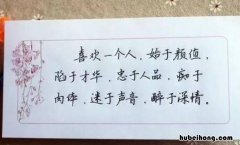 喜欢一个人，始于颜值，
陷于才华，忠于人品，痴于
肉体，迷于声音，醉于深情。
hubeihong.com